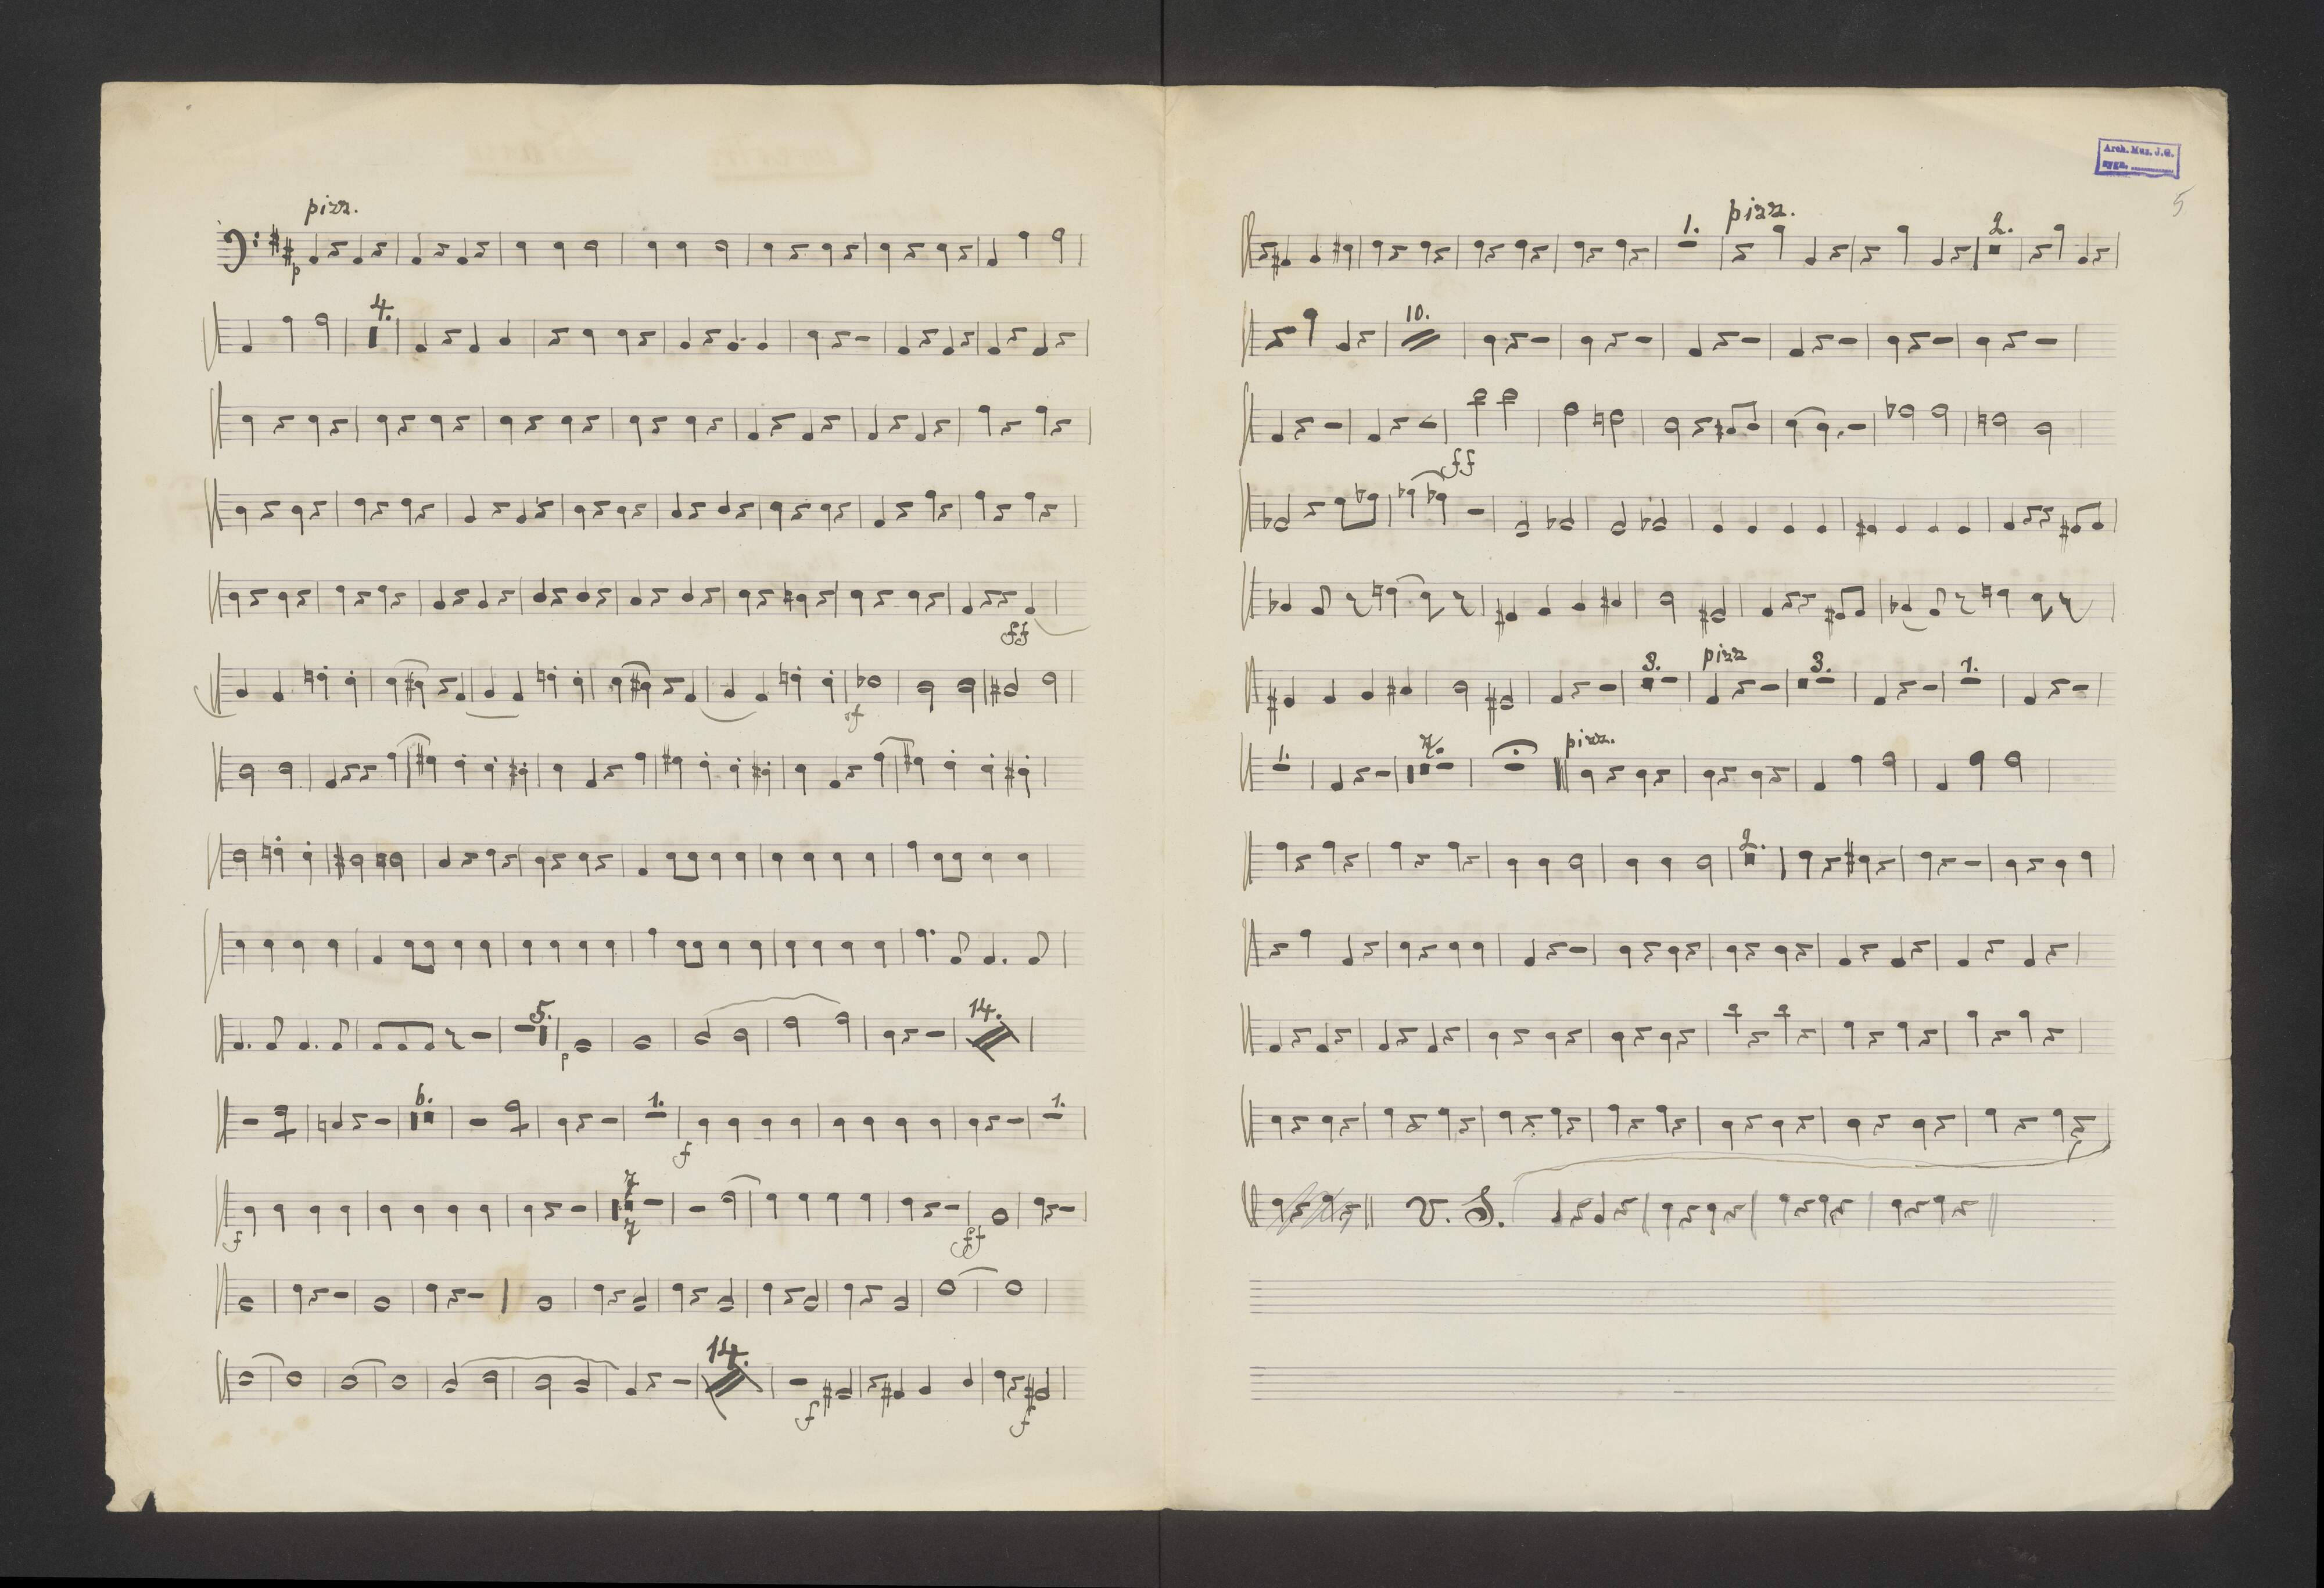 pizz.
p
4.
ff
sf
5.
14.
p
6.
1.
1.
f
7
7
f
ff
14.
f
f
Arch. Muz. J.G.
sygn.
5
1.
pizz.
2.
10.
ff
3.
pizz
3.
1.
1.
7.
pizz.
2.
V. S.